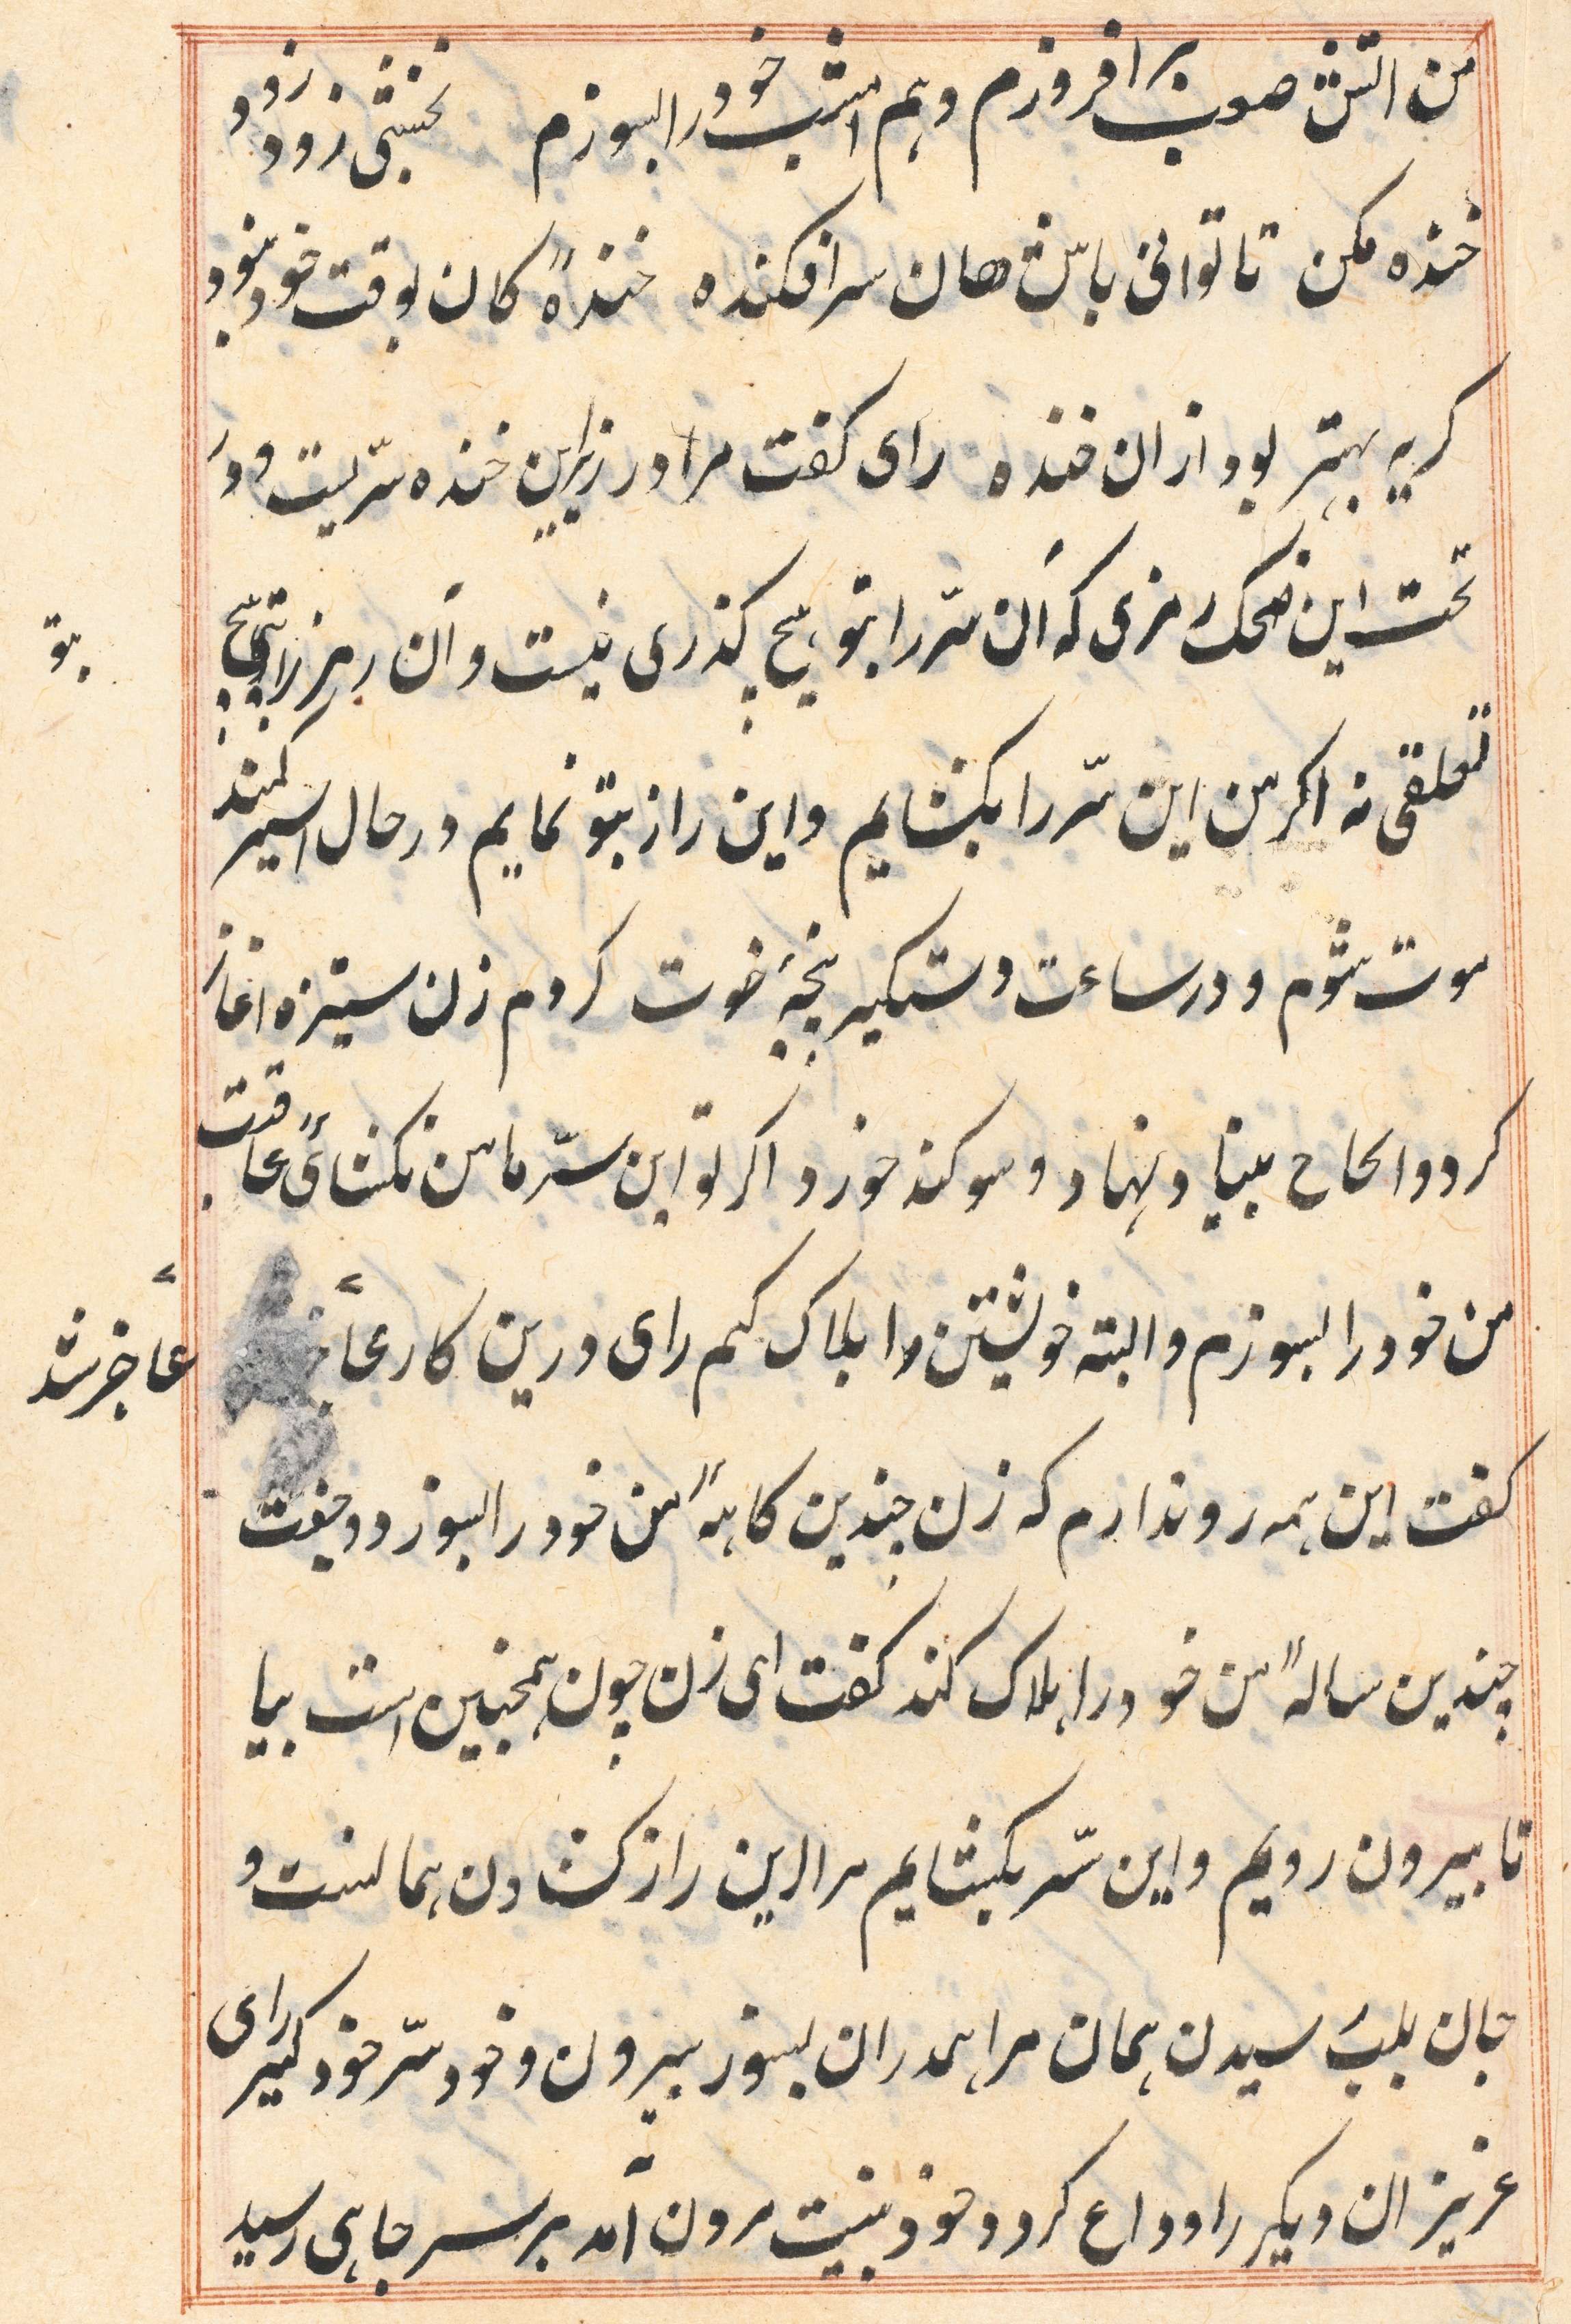 من اتش صعب برافروزم و هم امشب خود را بسوزم نخشبی زود زود
خنده مکن تا توانی باش هان سرافکنده خندهٔ کان بوقت خود نبود
کریه بهتر بود از ان خنده رای کفت مرا در زیر این خنده سّریست و در
تحت این ضحک رمزی که آن سّر را بتو هیچ کذری نیست و آن رمز را بتو هیچ
بتو
تعلقی نه اکر من این سّر را بکشایم و این راز بتو نمایم در حال اسیر کمند
موت شوم و در ساعت دستکیر پنجهٔ فوت کردم زن ستیزه اغاز
کرد و الحاح بنیاد نهاد و سوکند خورد اکر تو این سّر با من نکشائی عاقبت
من خود را بسوزم و البته خویشتن را هلاک کنم رای درین کار عاجز
عاجز شد
کفت این همه روندارم که زن چندین کاههٔ من خود را بسوزد و جفت
چندین سالهٔ من خود را هلاک کند کفت ای زن چون همچنین است بیا
تا بیرون رویم و این سّر بکشایم مرا این راز کشادن همانست و
جان بلب رسیدن همان مرا همدران بسوز بیرون و خود سّر خود کیر رای
عزیزان دیکر را وداع کرد و خود بنیت مردن آمد بر سر چاهی رسید